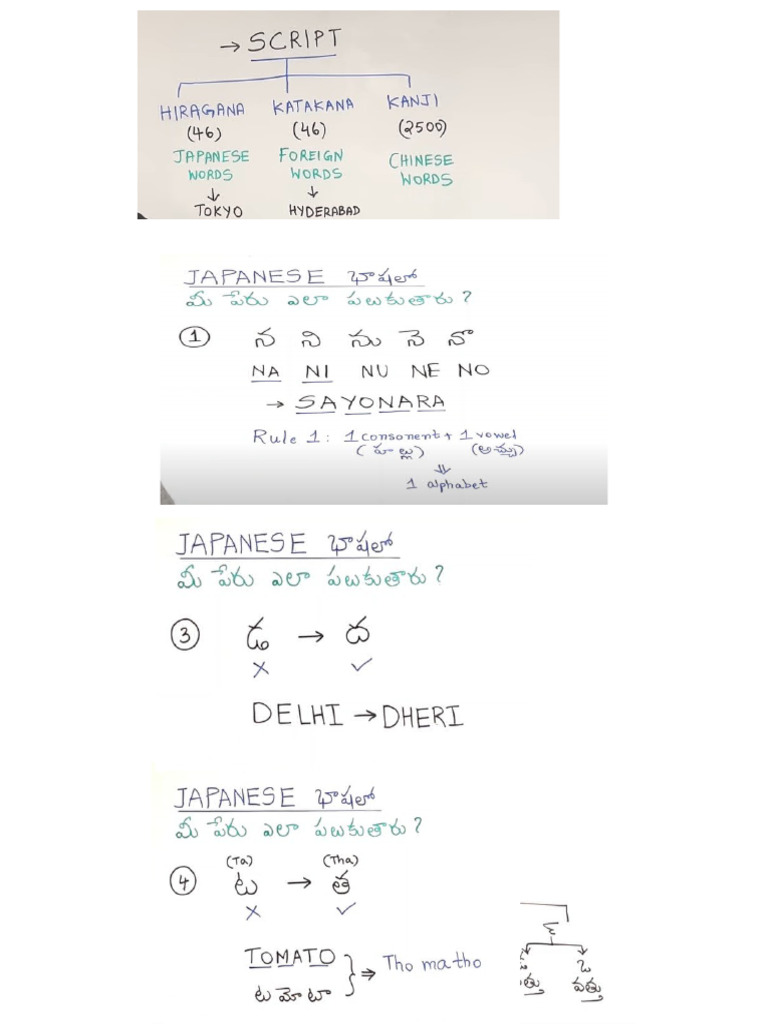 → SCRIPT
HIRAGANA KATAKANA KANJI
(46) (46) (2500)
JAPANESE FOREIGN CHINESE
WORDS WORDS WORDS
↓ ↓
TOKYO HYDERABAD
JAPANESE భాషలో
మీ పేరు ఎలా పలుకుతారు?
① న ని ను నె నొ
NA NI NU NE NO
→ SAYONARA
Rule 1: 1 consonent + 1 vowel
(హల్లు) (అచ్చు)
⇓
1 alphabet
JAPANESE భాషలో
మీ పేరు ఎలా పలుకుతారు?
③ డ → ద
✗ ✓
DELHI → DHERI
JAPANESE భాషలో
మీ పేరు ఎలా పలుకుతారు?
(Ta) (Tha)
④ ట → త
✗ ✓
TOMATO } ⇒ Tho ma tho
టమోటా
ఒ
వత్తు